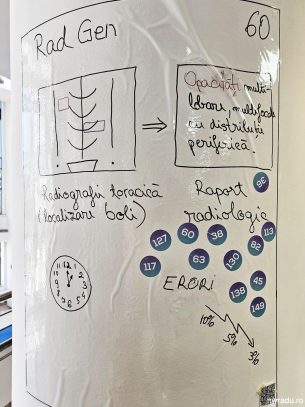 Rad Gen
60
Opacități multi-
lobare, multifocale
cu distribuție
periferică
Radiografii toracică
(localizare boli)
Raport
radiologic
36
127 60 38 113
82
117 63 130
45
138
149
12
11 1
10 2
9 3
8 4
7 6 5
ERORI
10%
5%
3%
vradu.ro